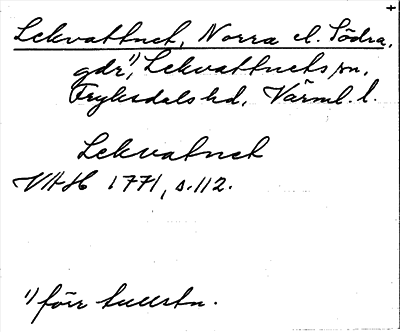 +
Lekvattnet, Norra el. Södra,
gdr¹⁾, Lekvattnets sn,
Fryksdals hd, Värml. l.
Lekvatnet
VAH 1771, s. 112.
¹⁾ förr tullstn.